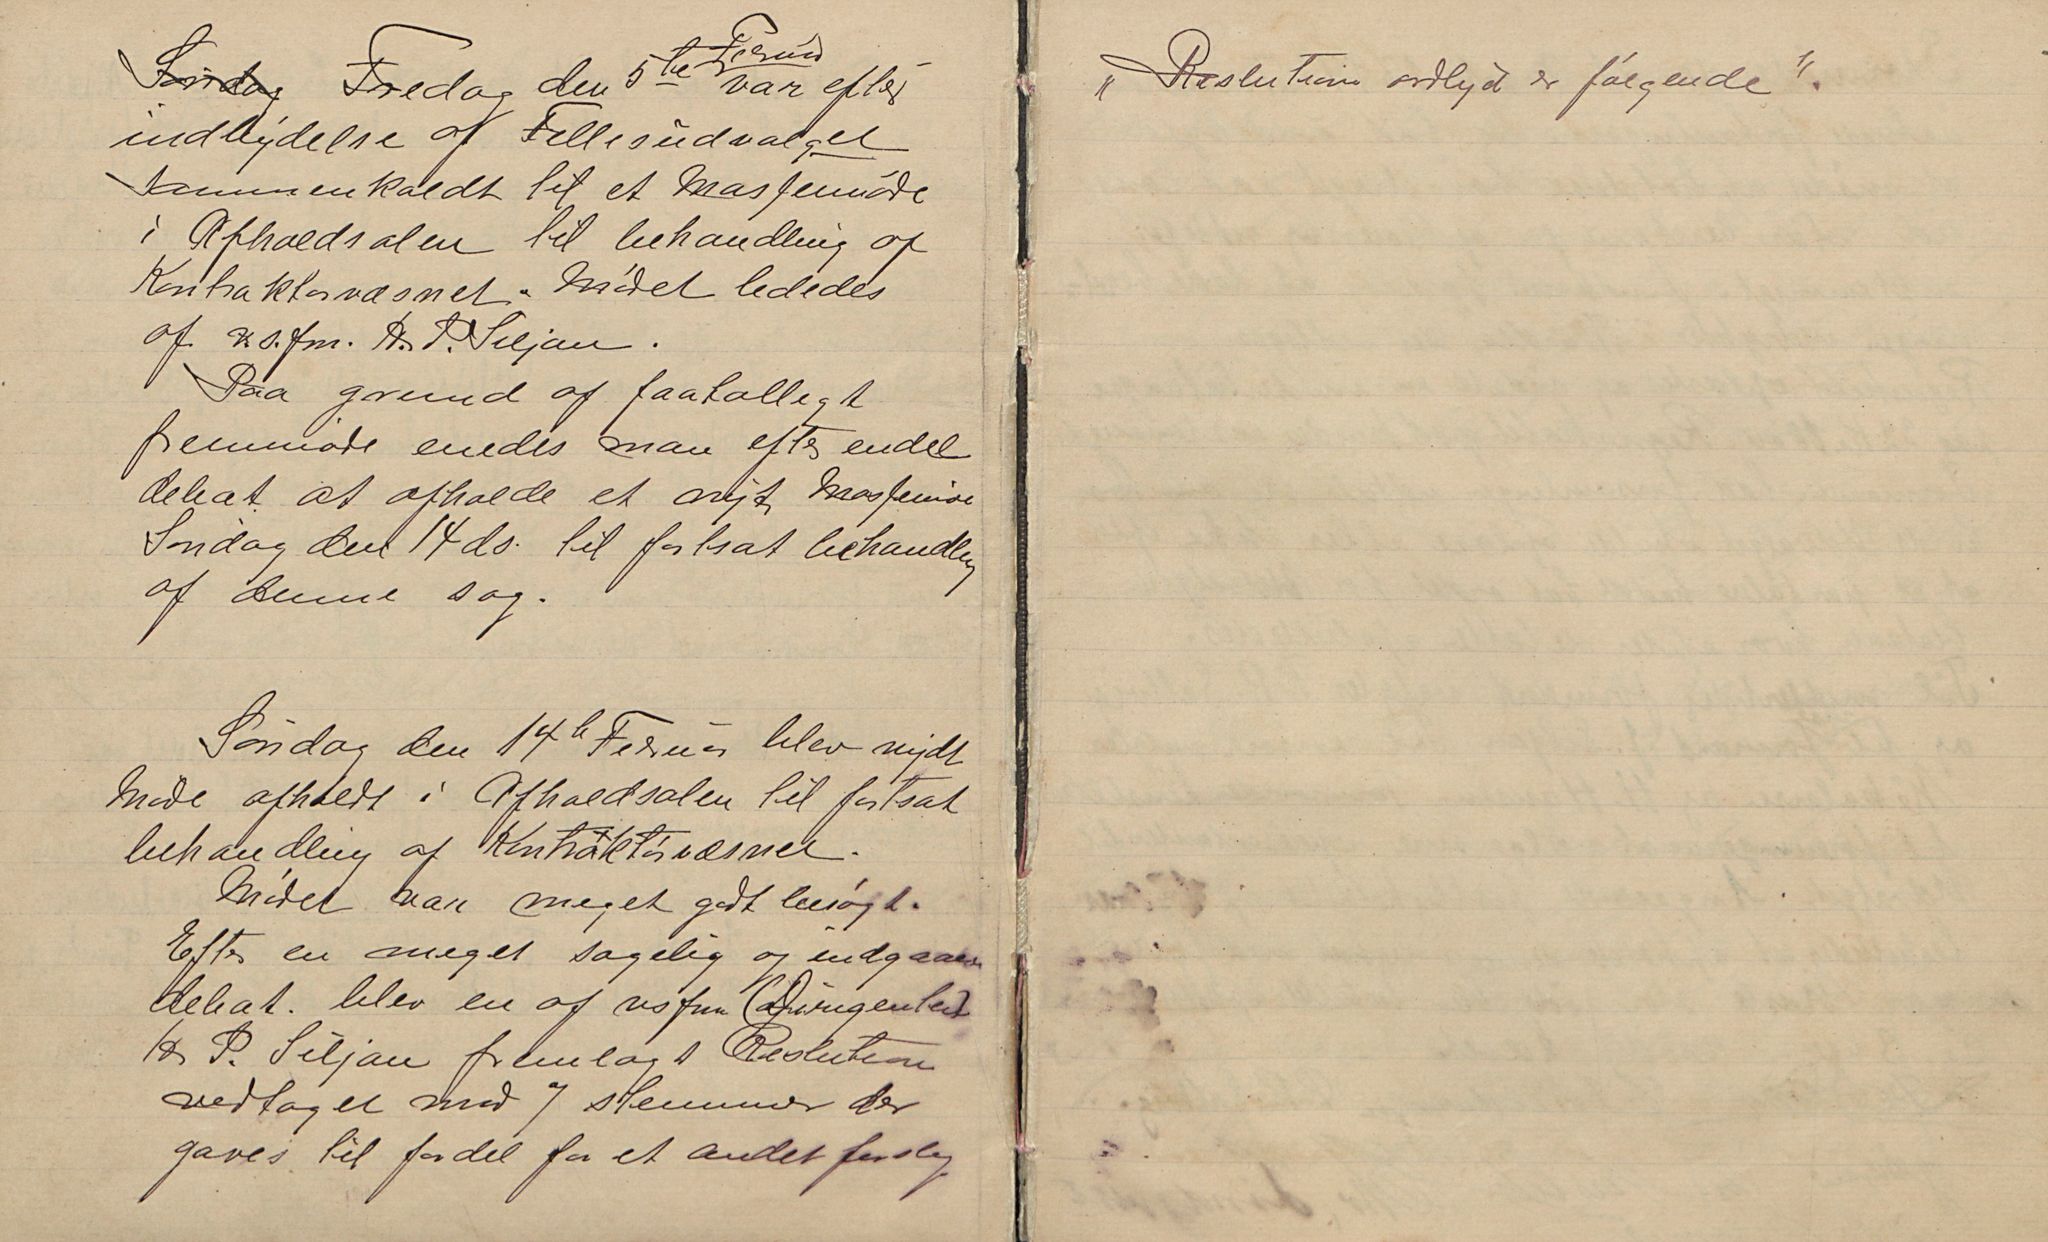 Søndag Fredag den 5te Feruar var efter
indbydelse af Fellesudvalget
sammenkaldt til et Massemøde
i Afholdsalen til behandling af
Kontraktorvæsnet. Mødet lededes
af v.s.fm. H. P. Siljan.
Paa grund af faatalligt
fremmøde enedes man efter endel
debat at afholde et nyt Massemøde
Søndag den 14 ds. til fortsat behandling
af denne sag.
Søndag den 14de Feruar blev nydt
Møde afholdt i Afholdsalen til fortsat
behandling af Kontraktørvæsnet.
Mødet var meget godt besøgt.
Efter en meget sagelig og indgaaende
debat. blev en af vsfm (Dirigenten)
Hr P. Siljan fremlagt Reslution
vedtaget mod 7 stemmer der
gaves til fordel for et andet forslag
"Reslution ordlyd er følgende".